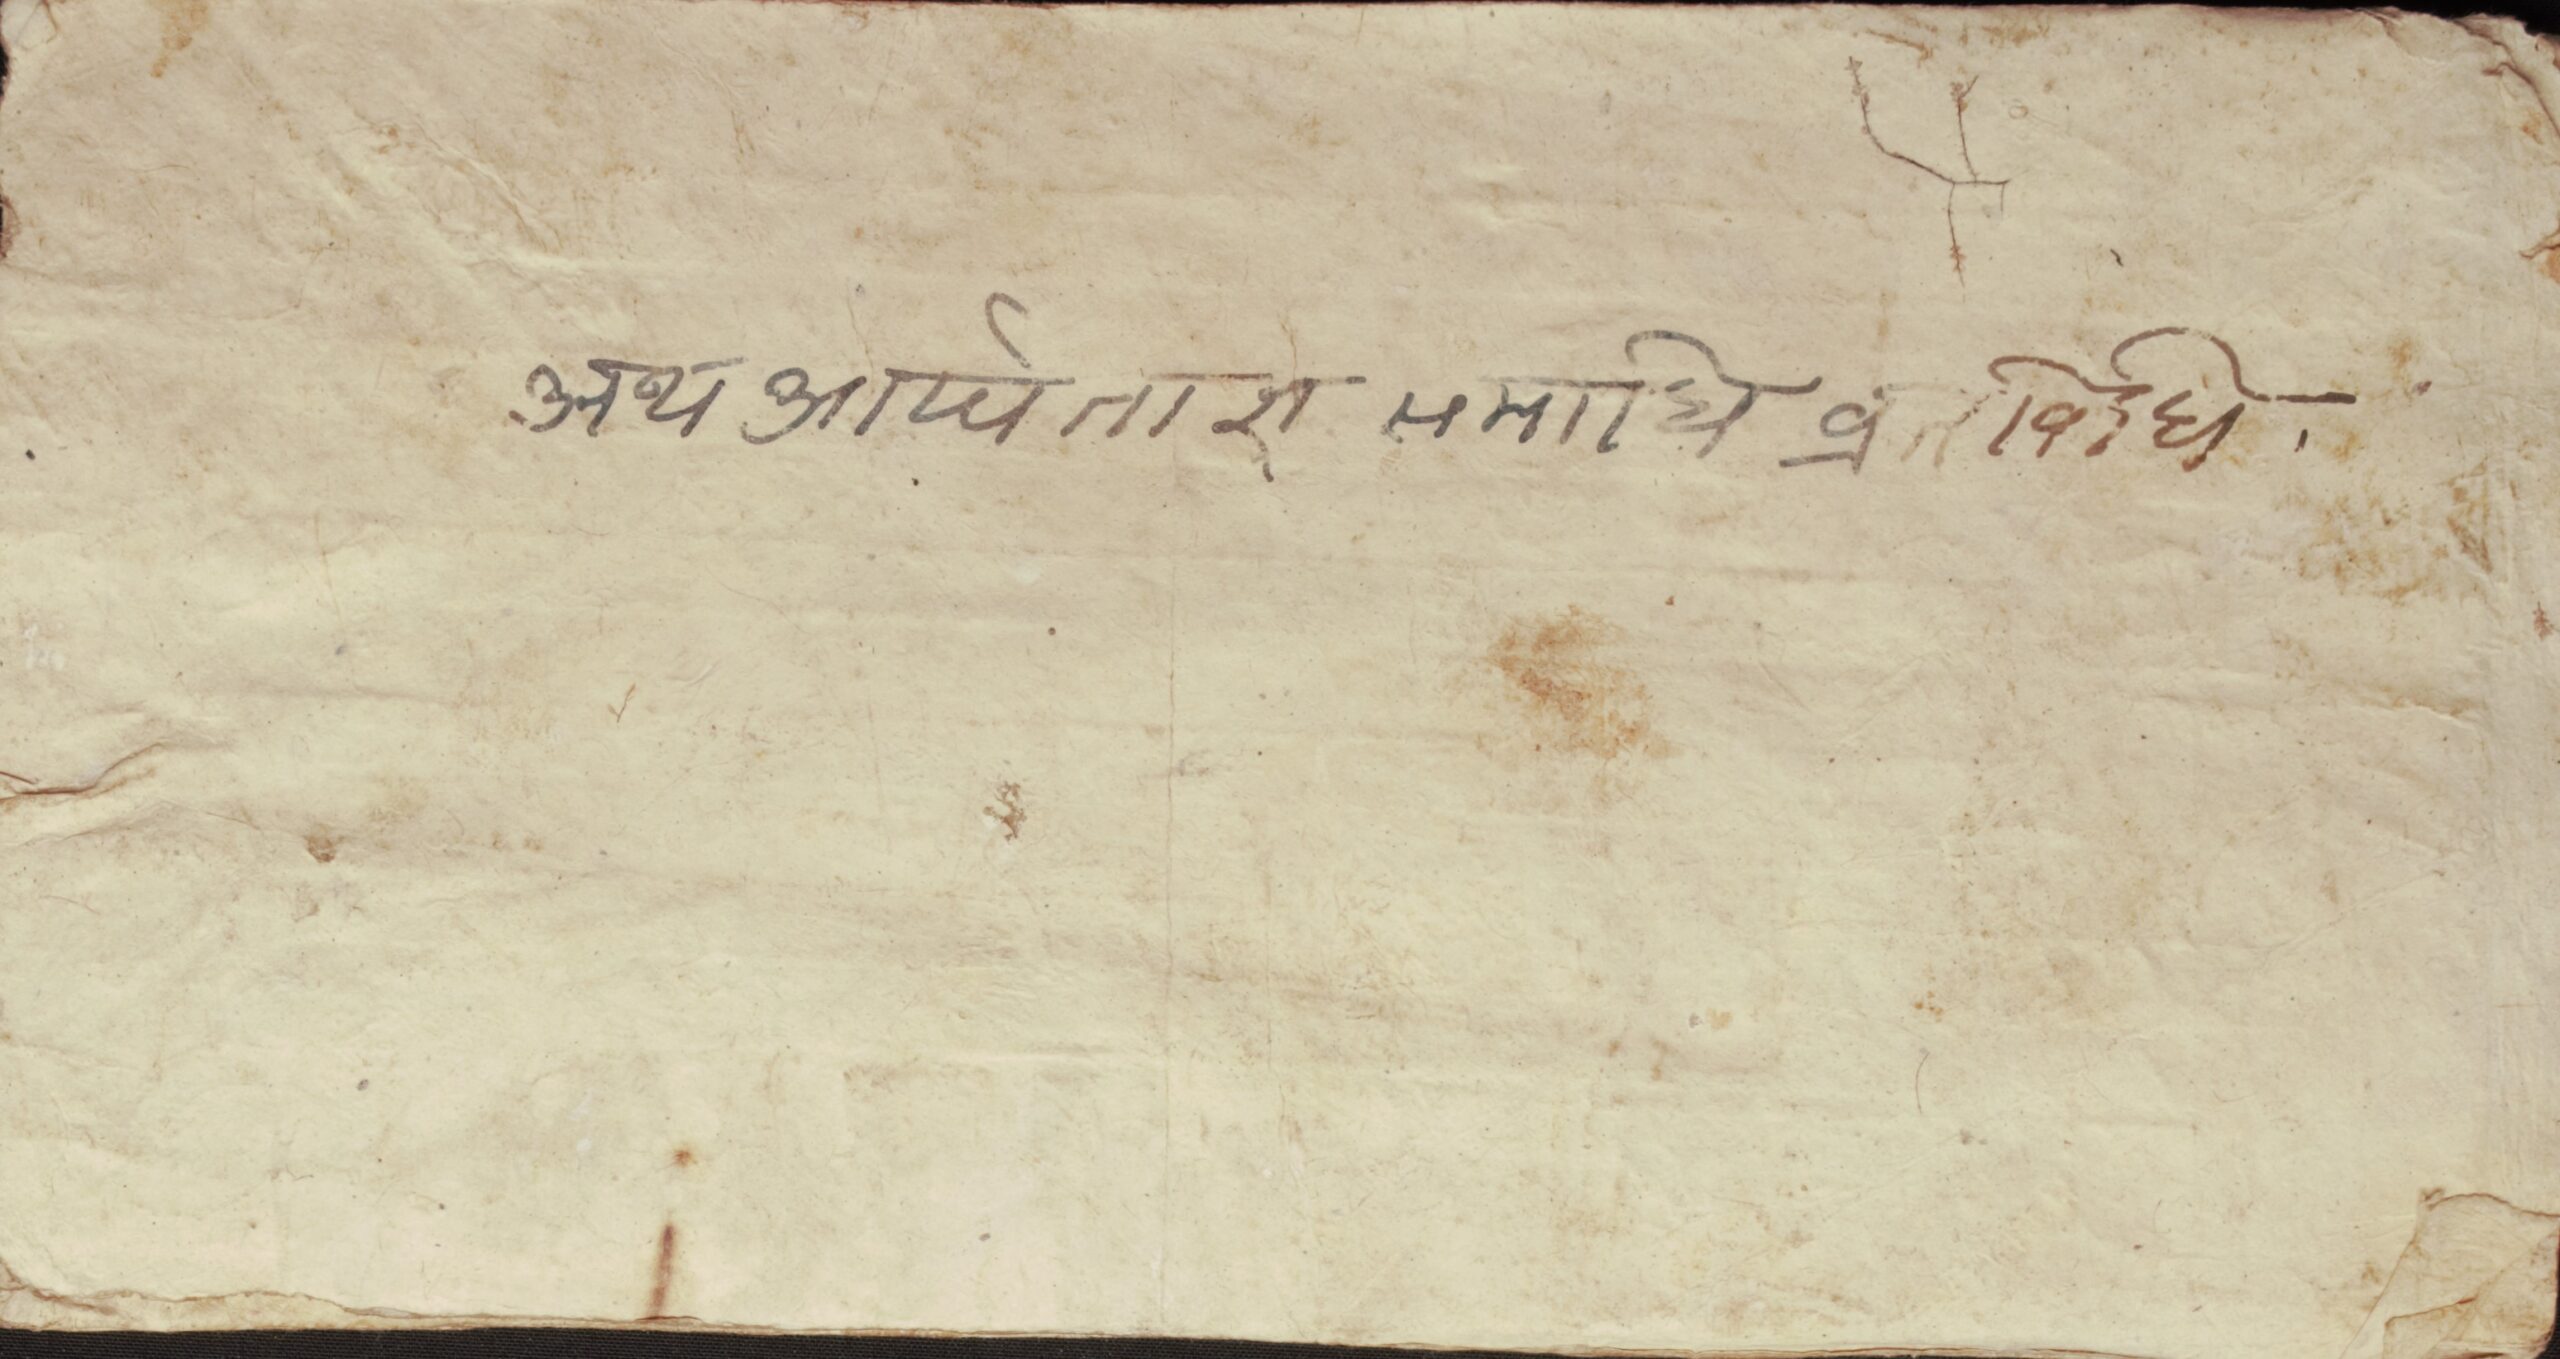 अथ आर्य्यतारा समाधि व्रतविधि ।